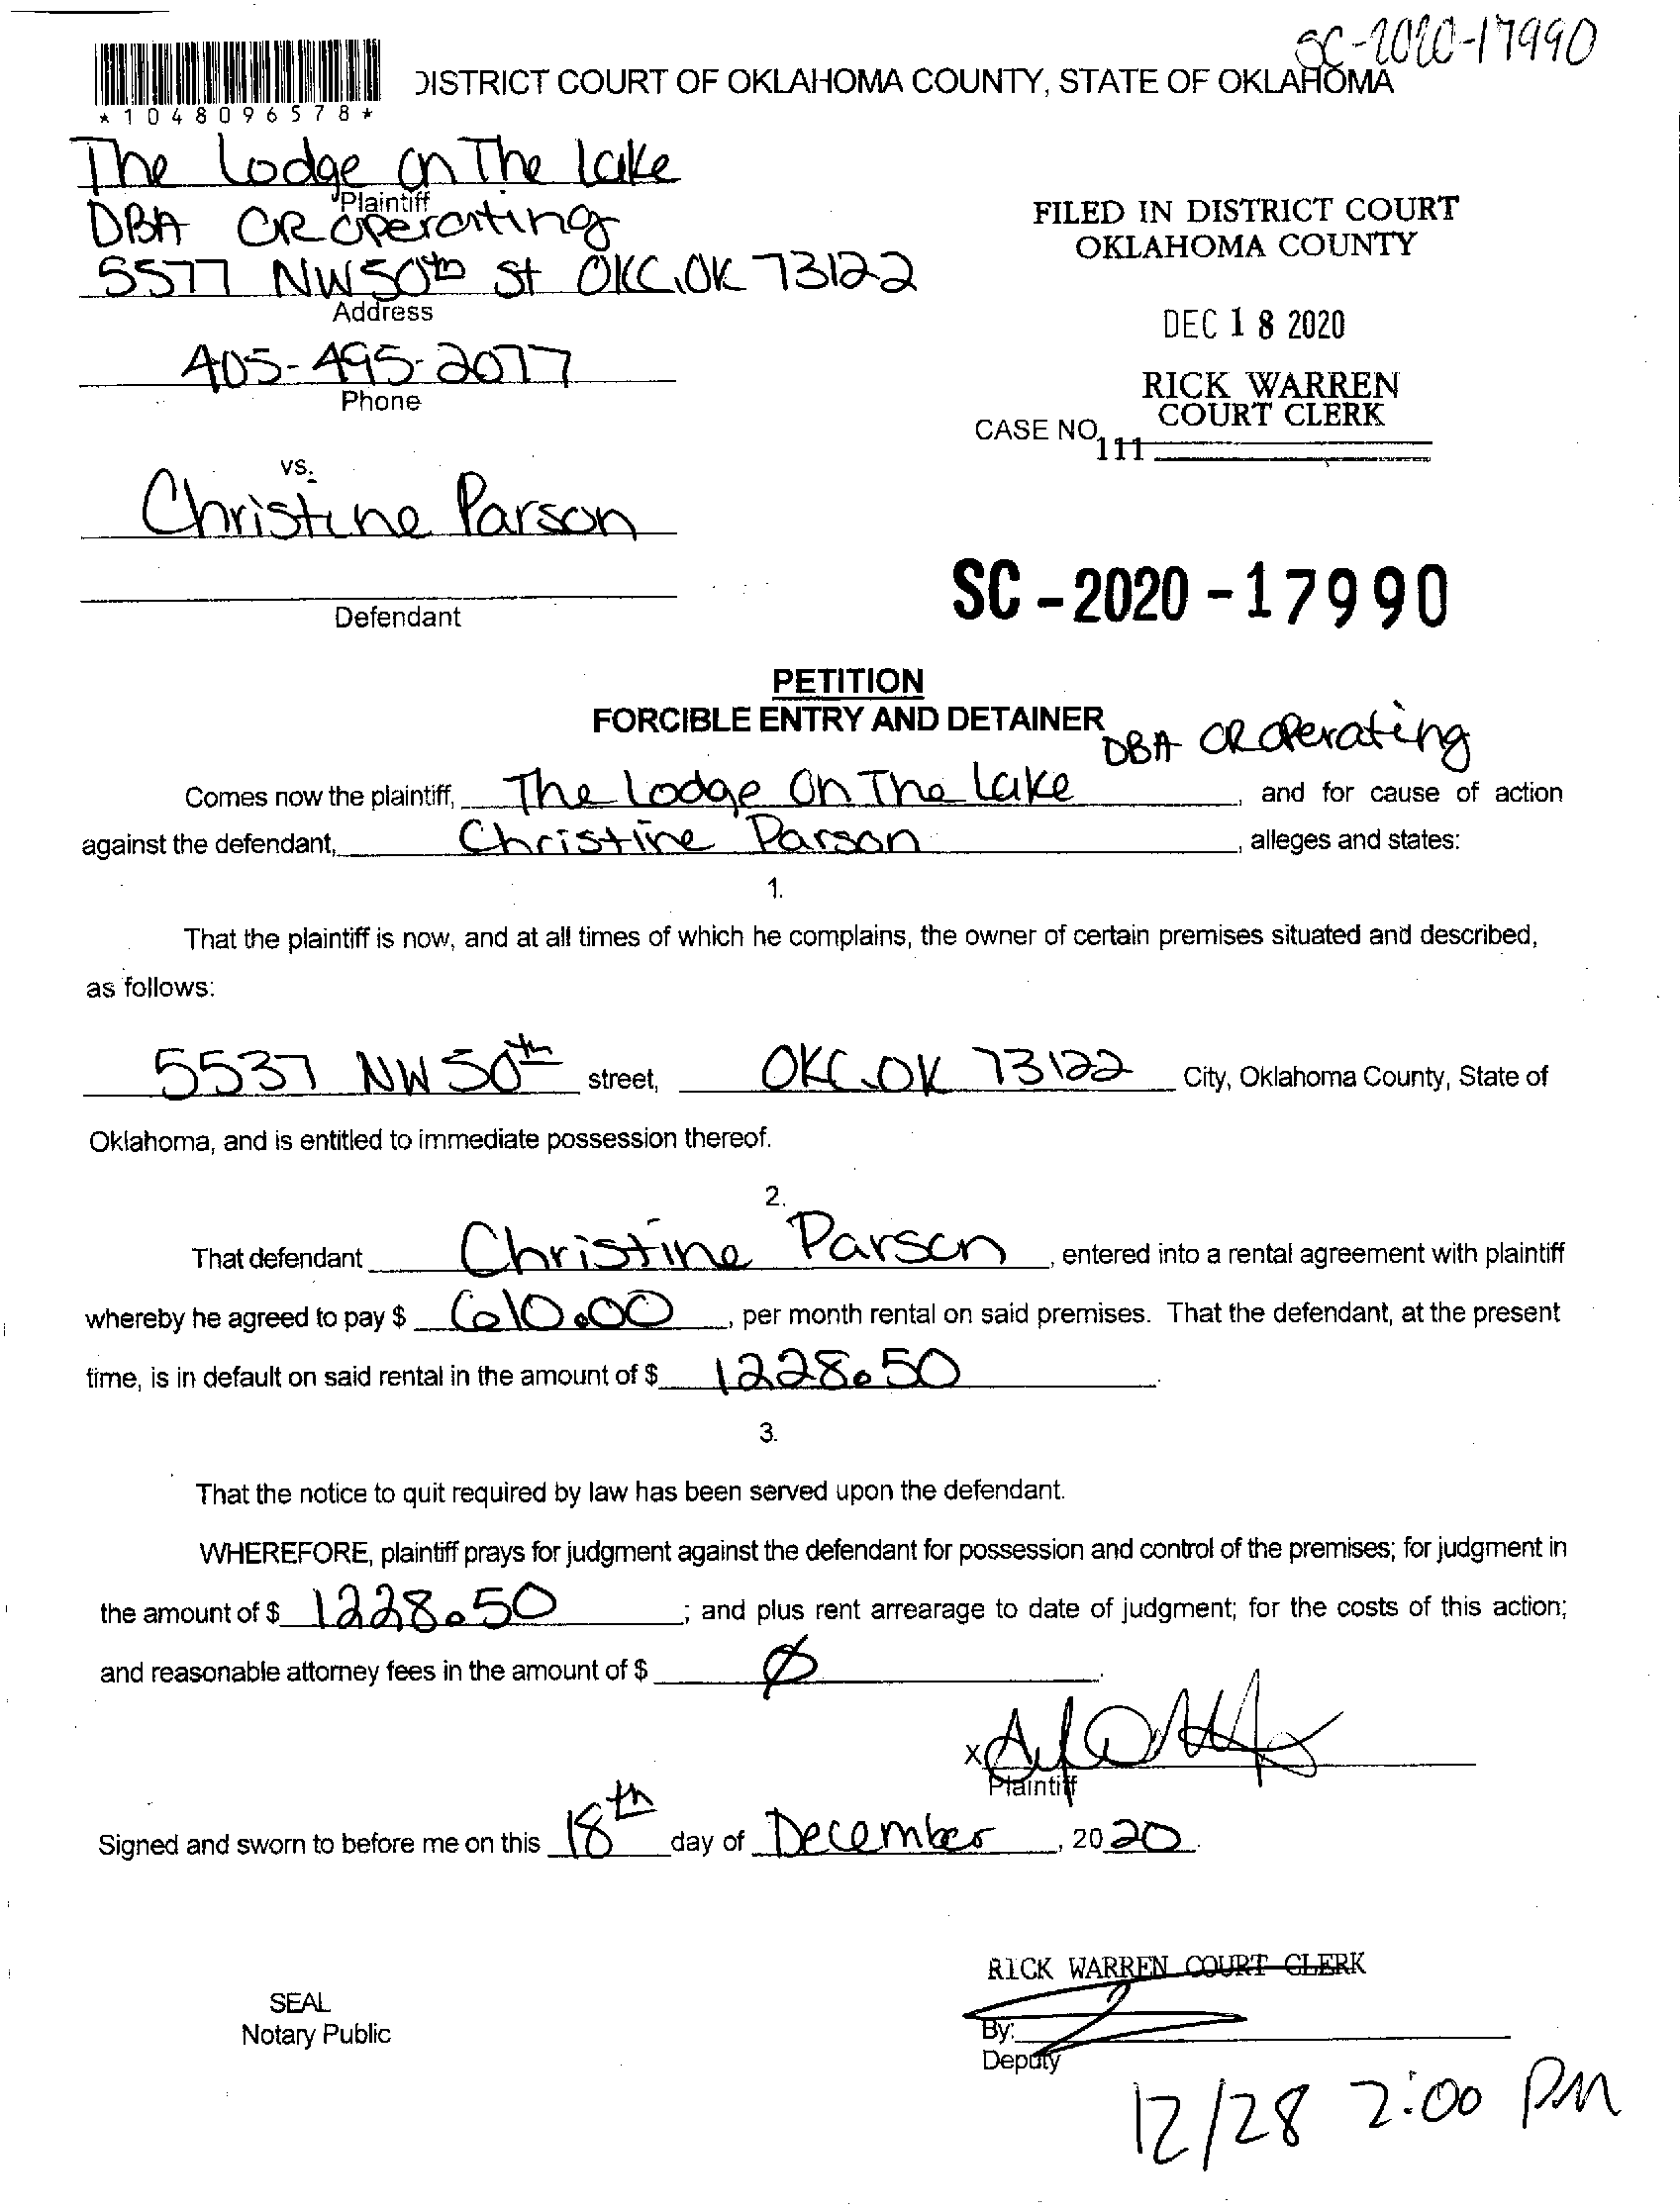 SC-2020-17990
*1048096578*
DISTRICT COURT OF OKLAHOMA COUNTY, STATE OF OKLAHOMA
The Lodge on The lake
Plaintiff
DBA CR Operating
5577 NW 50th St OKC, OK 73122
Address
405-495-2077
Phone
FILED IN DISTRICT COURT
OKLAHOMA COUNTY
DEC 18 2020
RICK WARREN
COURT CLERK
CASE NO.
111
vs.
Christine Parson
Defendant
SC-2020-17990
PETITION
FORCIBLE ENTRY AND DETAINER
DBA CR Operating
Comes now the plaintiff, The Lodge On The Lake, and for cause of action
against the defendant, Christine Parson, alleges and states:
1.
That the plaintiff is now, and at all times of which he complains, the owner of certain premises situated and described,
as follows:
5537 NW 50th street, OKC, OK 73122 City, Oklahoma County, State of
Oklahoma, and is entitled to immediate possession thereof.
2.
That defendant Christine Parson, entered into a rental agreement with plaintiff
whereby he agreed to pay $ 610.00, per month rental on said premises. That the defendant, at the present
time, is in default on said rental in the amount of $ 1228.50.
3.
That the notice to quit required by law has been served upon the defendant.
WHEREFORE, plaintiff prays for judgment against the defendant for possession and control of the premises; for judgment in
the amount of $ 1228.50; and plus rent arrearage to date of judgment; for the costs of this action;
and reasonable attorney fees in the amount of $ Ø.
X
Plaintiff
Signed and sworn to before me on this 18th day of December, 2020.
RICK WARREN COURT CLERK
SEAL
Notary Public
By:
Deputy
12/28 2:00 PM